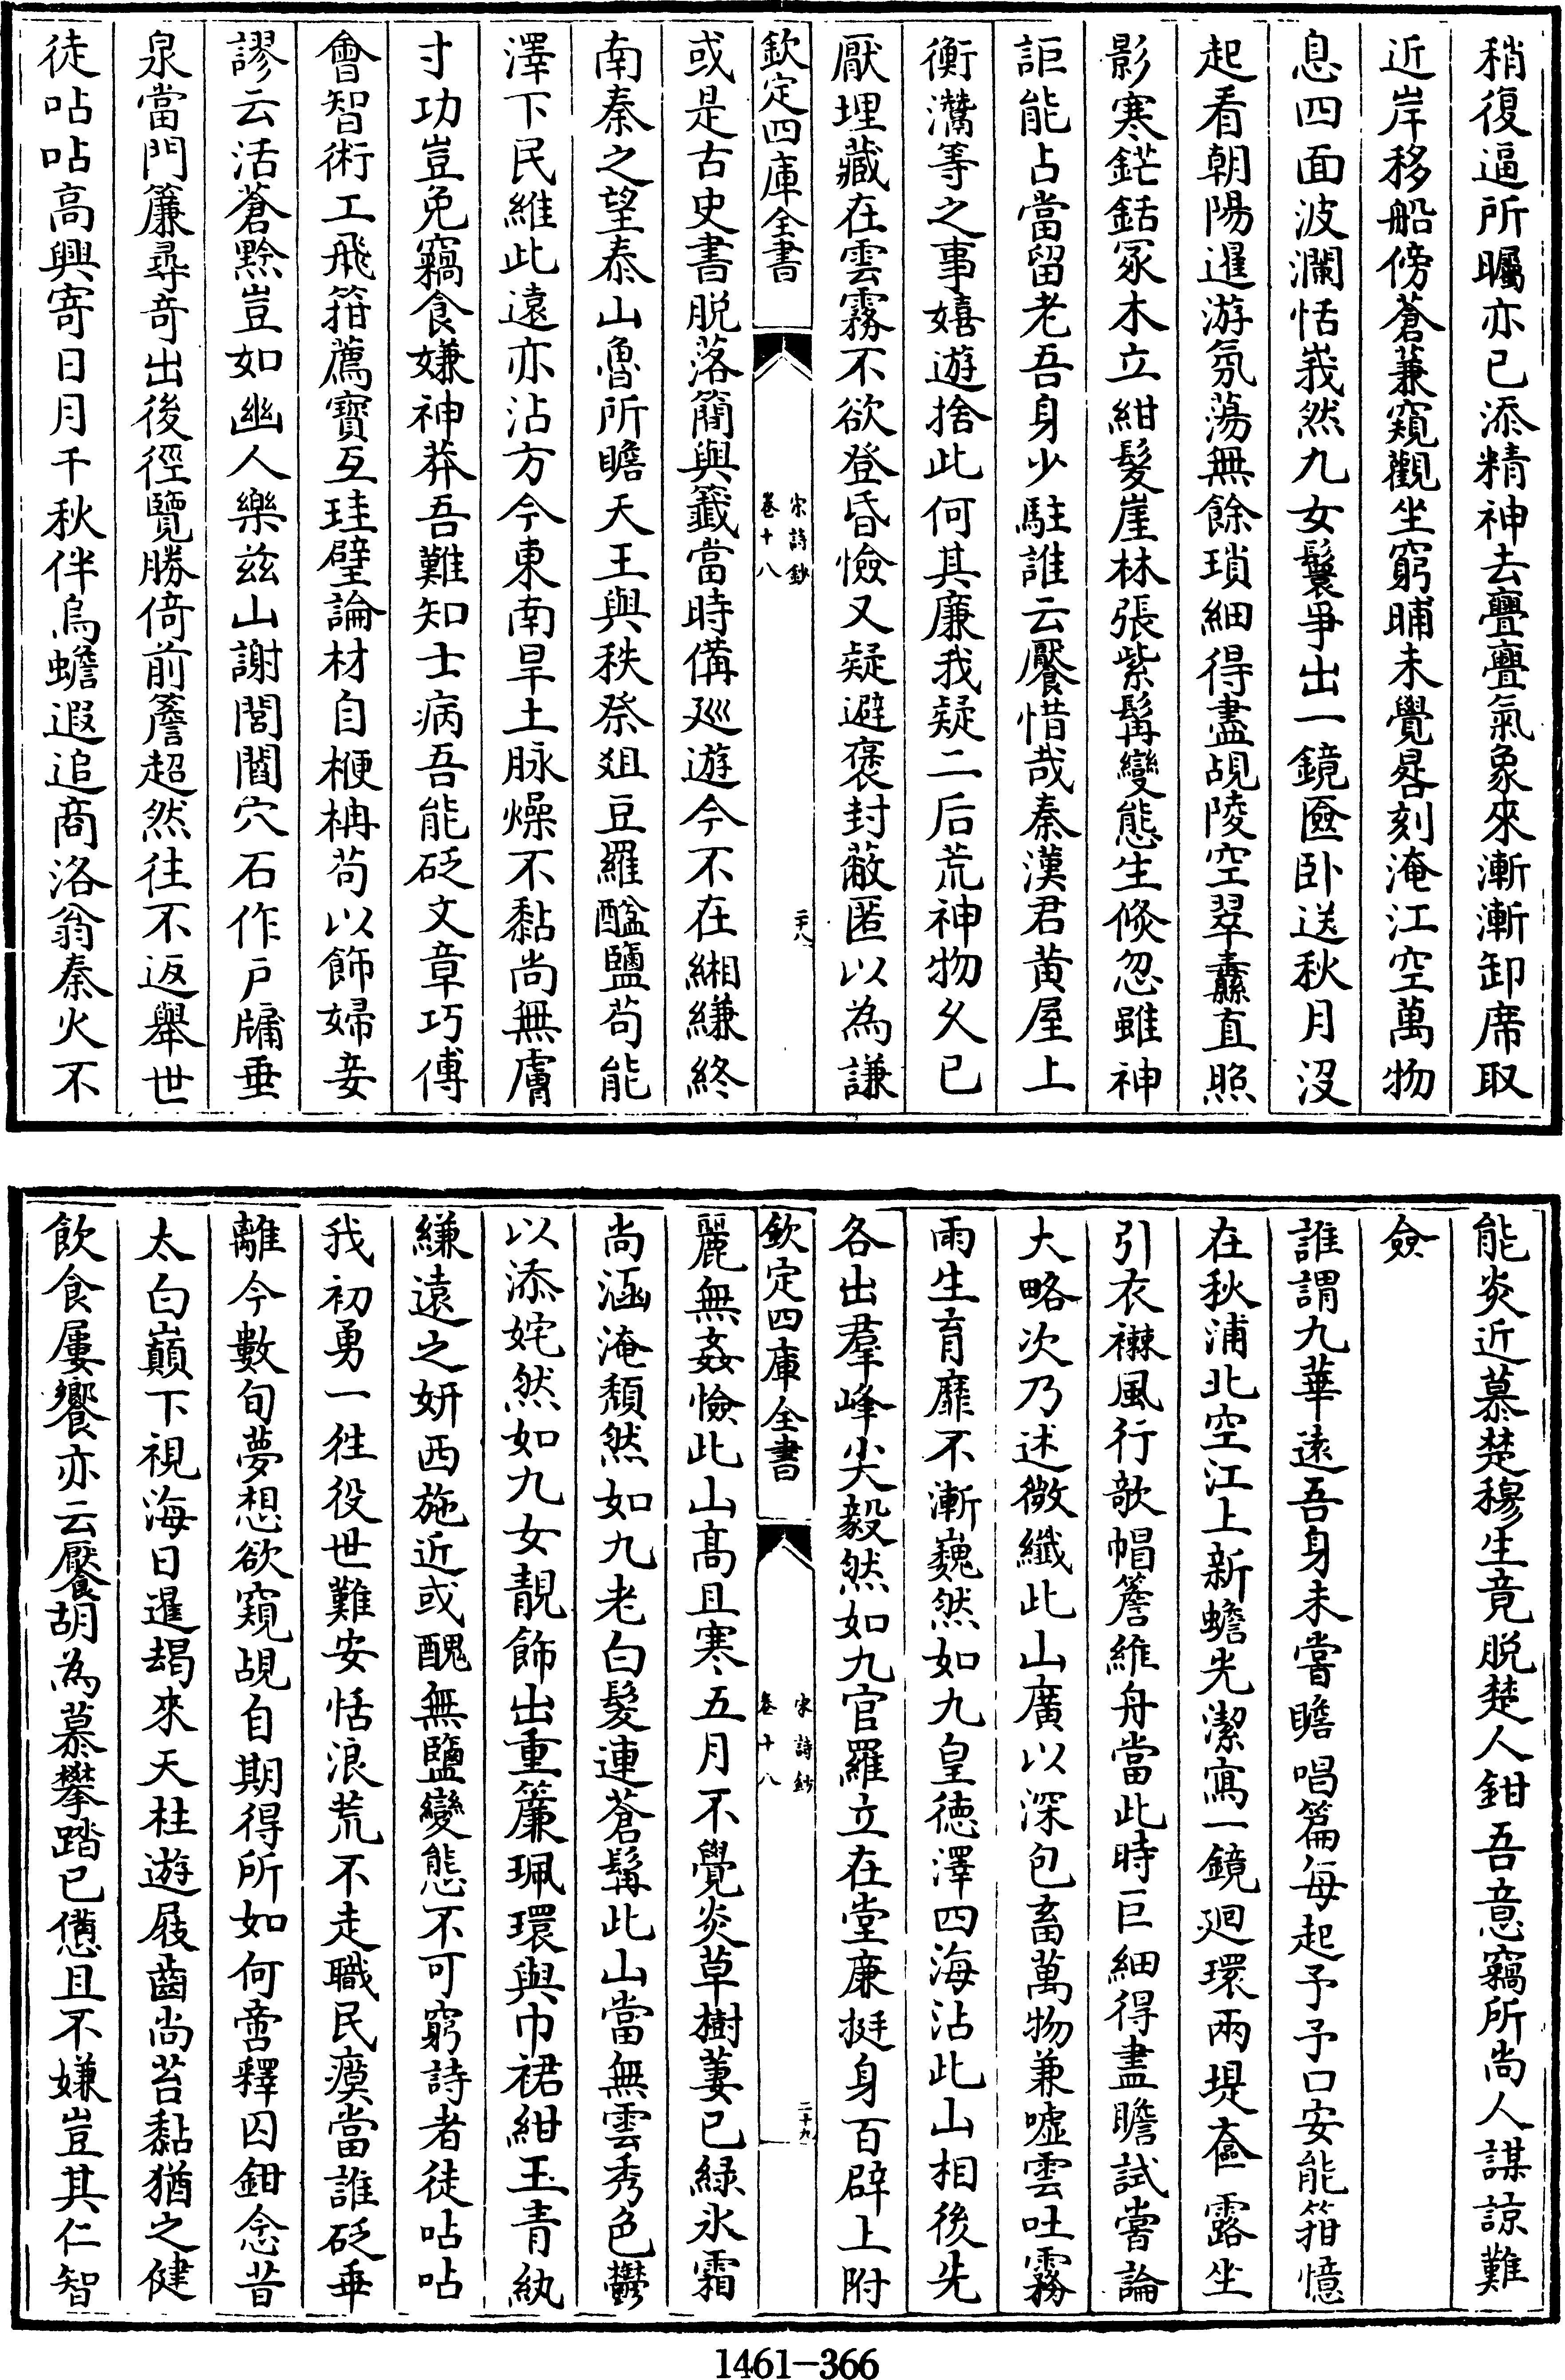 稍復逼所矚亦已添精神去亹亹氣象來漸漸卸席取
近岸移船傍蒼蒹窺觀坐窮晡未覺晷刻淹江空萬物
息四面波瀾恬峩然九女鬟爭出一鏡匳卧送秋月沒
起看朝陽暹游氛蕩無餘瑣細得盡覘陵空翠纛直照
影寒鋩銛冢木立紺髮崖林張紫髯變態生倏忽雖神
詎能占當留老吾身少駐誰云饜惜哉秦漢君黄屋上
衡灊等之事嬉遊捨此何其廉我疑二后荒神物久已
厭埋藏在雲霧不欲登昏憸又疑避褒封蔽匿以為謙
欽定四庫全書
宋詩鈔
卷十八
二十八
或是古史書脱落簡與籖當時備廵遊今不在緗縑終
南秦之望泰山魯所瞻天王與秩祭爼豆羅醯鹽苟能
澤下民維此遠亦沾方今東南旱土脉燥不黏尚無膚
寸功豈免竊食嫌神莽吾難知士病吾能砭文章巧傅
會智術工飛箝薦寳互珪璧論材自楩柟苟以飾婦妾
謬云活蒼黔豈如幽人樂兹山謝閭閻穴石作戸牖垂
泉當門簾尋奇出後徑覽勝倚前簷超然往不返舉世
徒呫呫高興寄日月千秋伴烏蟾遐追商洛翁秦火不
能炎近慕楚穆生竟脱楚人鉗吾意竊所尚人謀諒難
僉
誰謂九華逺吾身未嘗瞻唱篇每起予予口安能箝憶
在秋浦北空江上新蟾光潔寫一鏡廻環兩堤奩露坐
引衣襋風行歌帽簷維舟當此時巨細得盡瞻試嘗論
大略次乃述微纖此山廣以深包畜萬物兼嘘雲吐霧
雨生育靡不漸巍然如九皇德澤四海沾此山相後先
各出羣峰尖毅然如九官羅立在堂廉挺身百辟上附
欽定四庫全書
宋詩鈔
卷十八
二十九
麗無姦憸此山髙且寒五月不覺炎草樹萋已緑氷霜
尚涵淹頽然如九老白髮連蒼髯此山當無雲秀色鬱
以添姹然如九女靚飾出重簾珮環與巾裙紺玉青紈
縑遠之妍西施近或醜無鹽變態不可窮詩者徒呫呫
我初勇一徃役世難安恬浪荒不走職民瘼當誰砭垂
離今數旬夢想欲窺覘自期得所如何啻釋囚鉗念昔
太白巔下視海日暹朅來天柱遊屐齒尚苔黏猶之健
飲食屢饗亦云饜胡為慕攀踏已憊且不嫌豈其仁智
1461-366